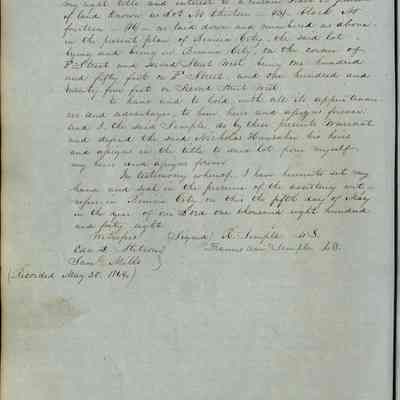 my right title and interest to a certain
of land known as Lot No thirteen - 13 - Block No
fourteen - 14 - as laid down and numbered as above
in the present plan of Benicia City, the said lot
lying and being in Benicia City, on the corner of
F Street and Second Street West being one hundred
and fifty feet on F Street, and one hundred and
twenty five feet on Second Street West
to have and to hold, with all its appurtenan
ces and advantages, to him heirs and assigns forever,
and I the said Semple do by these presents Warrant
and defend the said Nicholas his heirs
and assigns in the title to said lot from myself
my heirs and assigns forever
In testimony whereof I have hereunto set my
hand and seal in the presence of the assisting wit-
nesses in Benicia City, on this the fifth day of May
in the year of our Lord one thousand eight hundred
and forty eight
Witnesses (Signed) R. Semple L.S.
Frances Ann Semple L.S.
Saml Mills
(Recorded May 30.